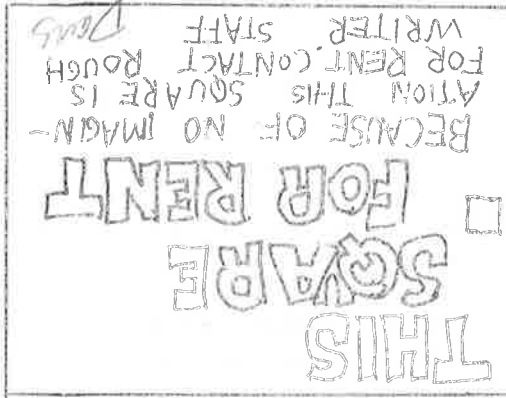 THIS
SQUARE
FOR RENT
BECAUSE OF NO IMAGN-
ATION THIS SQUARE IS
FOR RENT. CONTACT ROUGH
WRITER STAFF